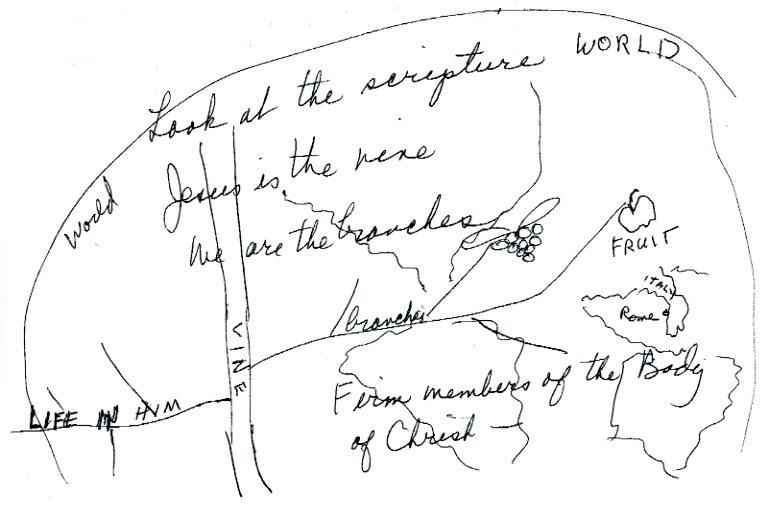 WORLD
Look at the scripture
World
Jesus is the vine
We are the branches
FRUIT
ITALY
Rome
branches
VINE
LIFE IN HIM
Firm members of the Body
of Christ